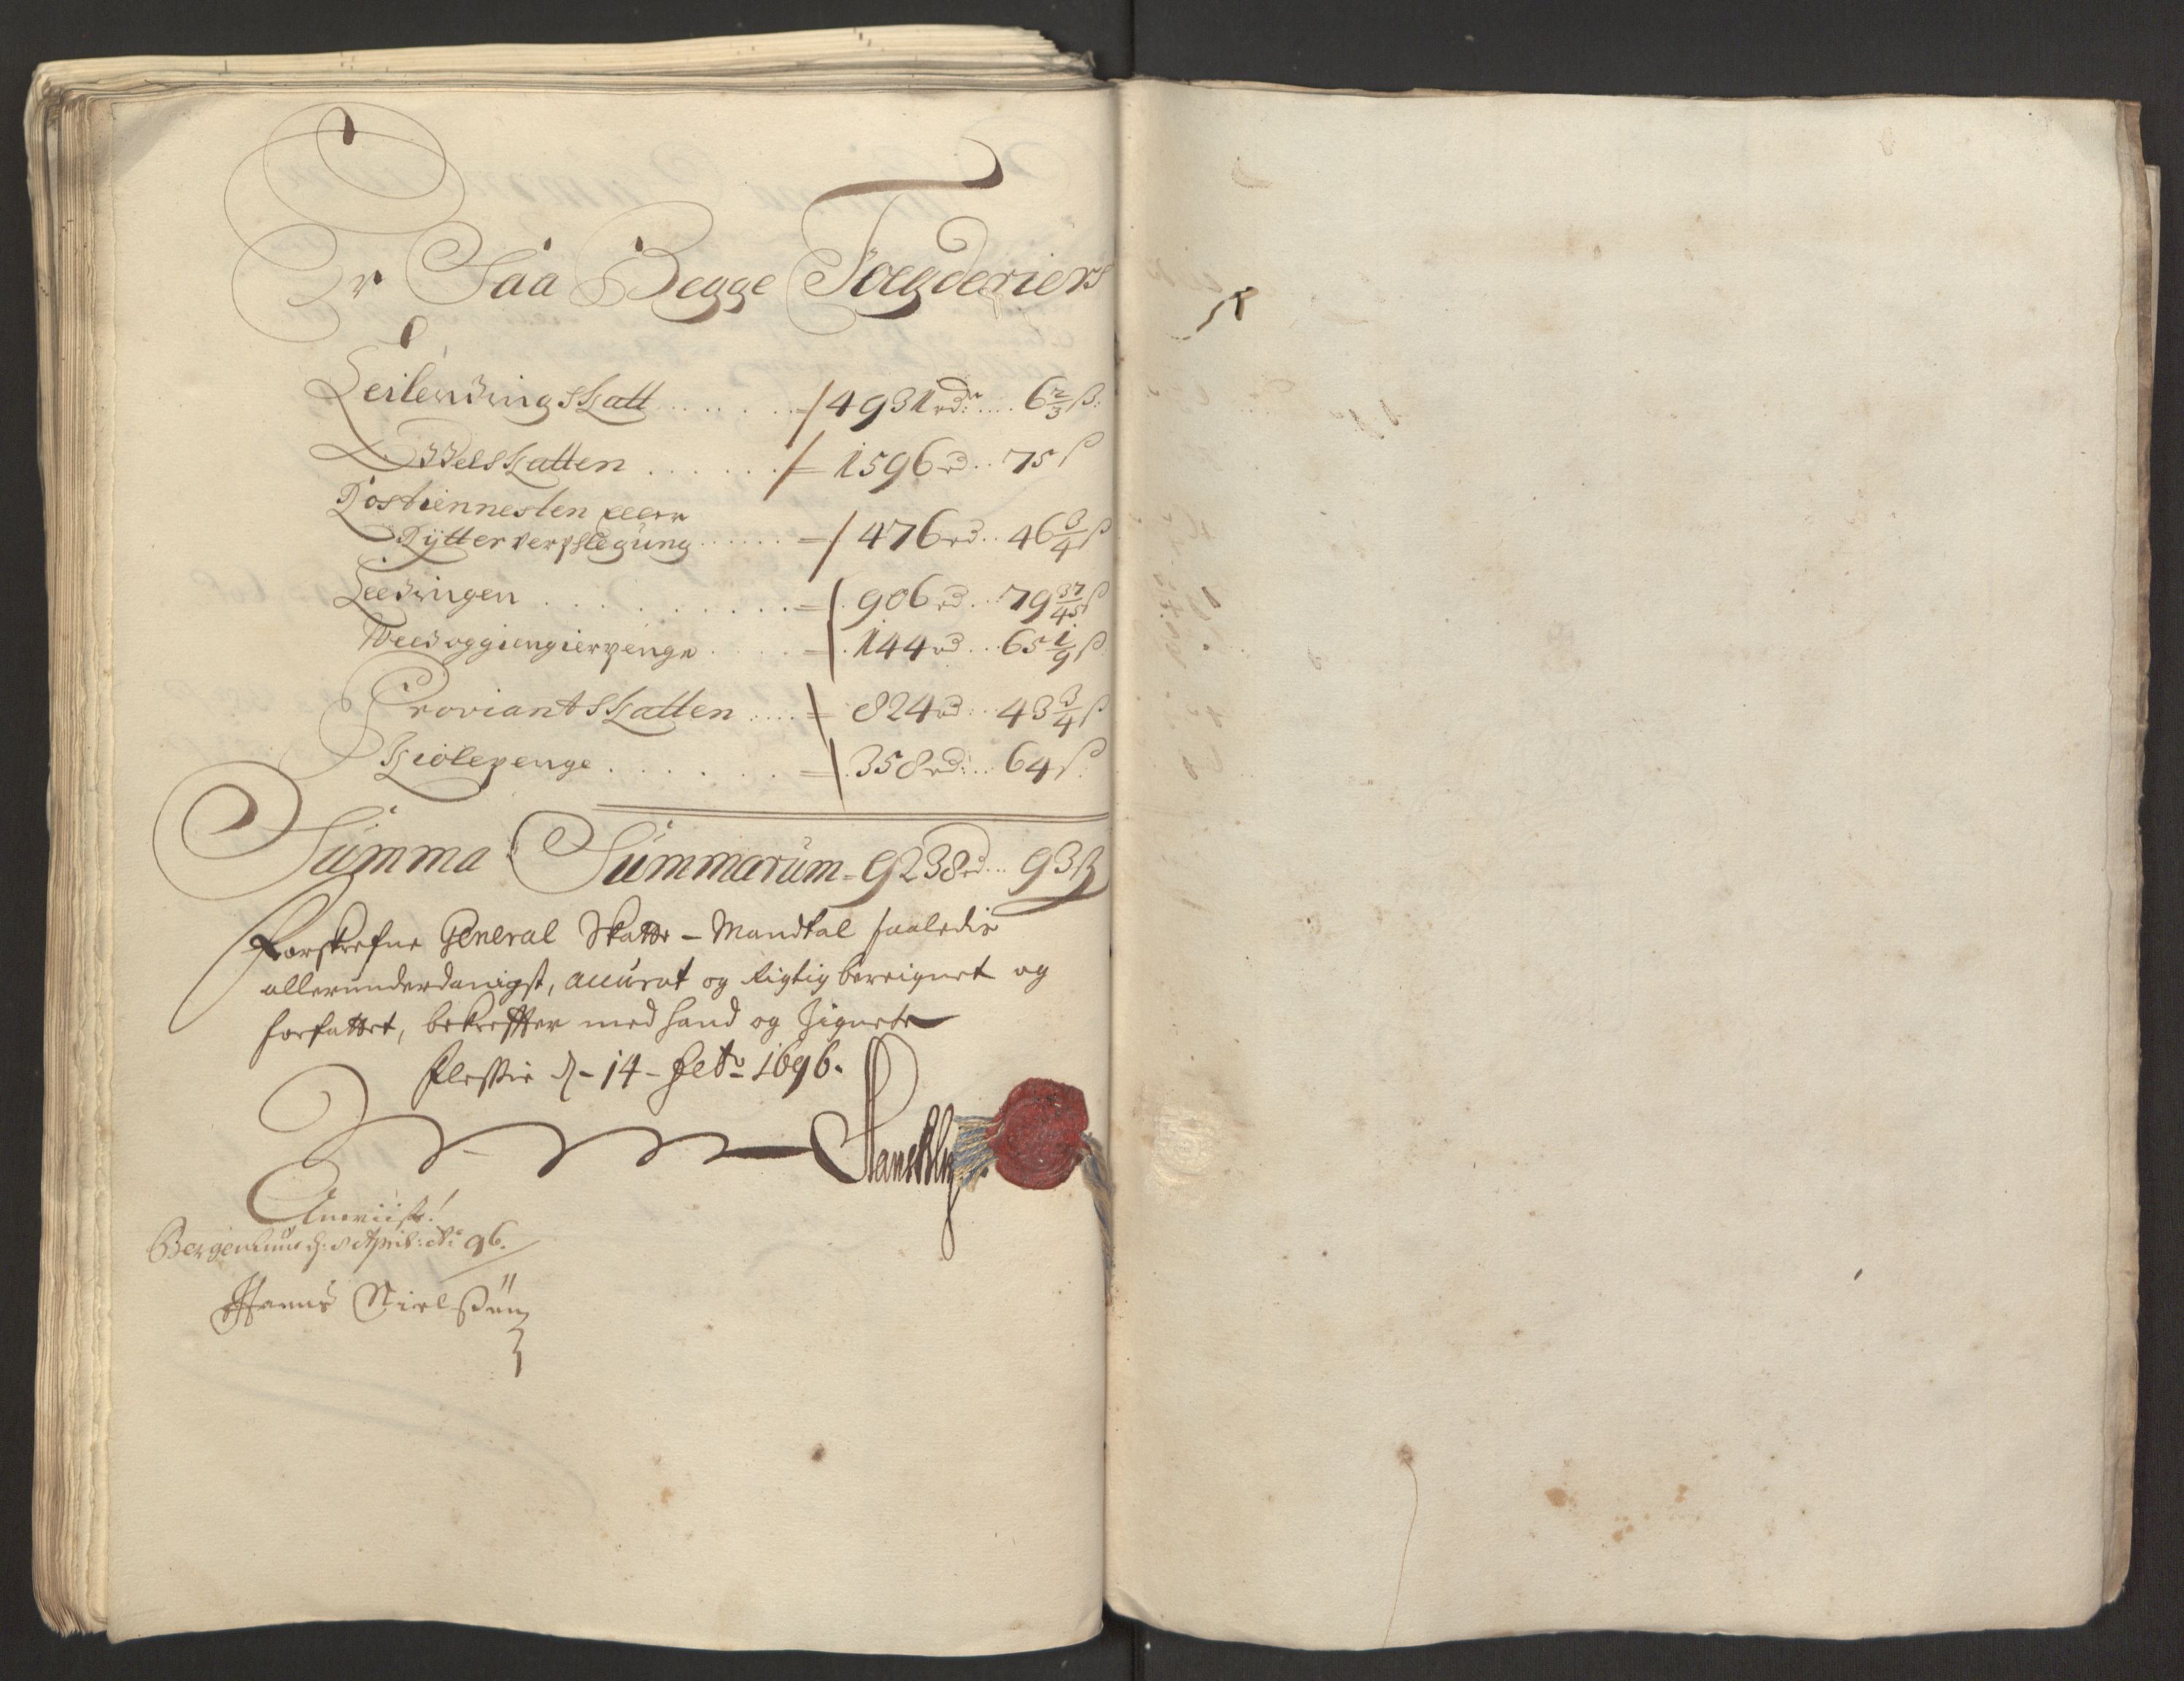 Er Saa Begge Foegderiers
Leilendings Skatt ........ = 4931 rdr .... 6 2/3 ß:
Odels Skatten ....... = 1596 rd .. 75 ß
Rostiennesten eller
Rÿtterverpflegŭng ...... = 476 rd .. 46 3/4 ß
Leedingen .......... = 906 rd .. 79 37/45 ß
Weed og giengierpenge ..... = 144 rd ... 65 1/9 ß
Proviant Skatten .... = 824 rd ... 43 3/4 ß
Skiolepenge ....... = 358 rd: ... 64 ß:
Sŭmma Sŭmmarŭm = 9238 rd ... 93 ß
Forskrefne General Skatte - Mandtal saaledis
allerunderdanigst, accŭrat og rigtig bereignet og
forfattet, bekreffter med hand og Zignete
d - 14 - 1696.
Anviist!
Bergenhuus d: 8 April: Ao 96.
Hanns Nielßen